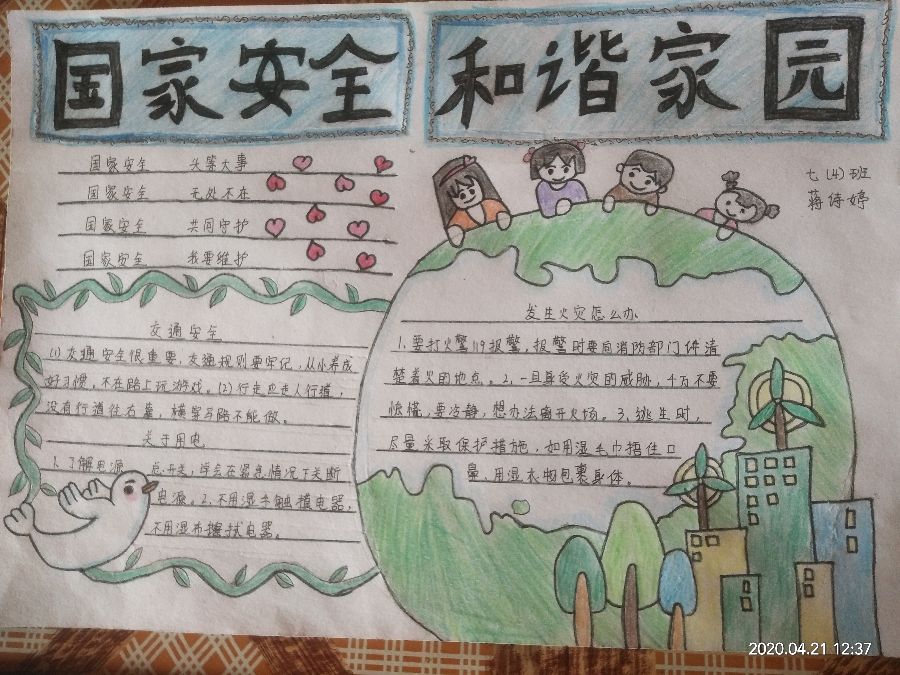 国家安全 和谐家园
七(4)班
蒋诗婷
国家安全 头等大事
国家安全 无处不在
国家安全 共同守护
国家安全 我要维护
交通安全
(1)交通安全很重要，交通规则要牢记，从小养成
好习惯，不在路上玩游戏。(2)行走应走人行道，
没有行道往右靠，横穿马路不能做。
关于用电
1、了解电源总开关，学会在紧急情况下关断
电源。2、不用湿手触摸电器，
不用湿布擦拭电器。
发生火灾怎么办
1.要打火警119报警，报警时要向消防部门讲清
楚着火的地点。2,一旦身受火灾的威胁，千万不要
惊慌，要冷静，想办法离开火场。3,逃生时，
尽量采取保护措施，如用湿毛巾捂住口
鼻、用湿衣物包裹身体。
2020.04.21 12:37